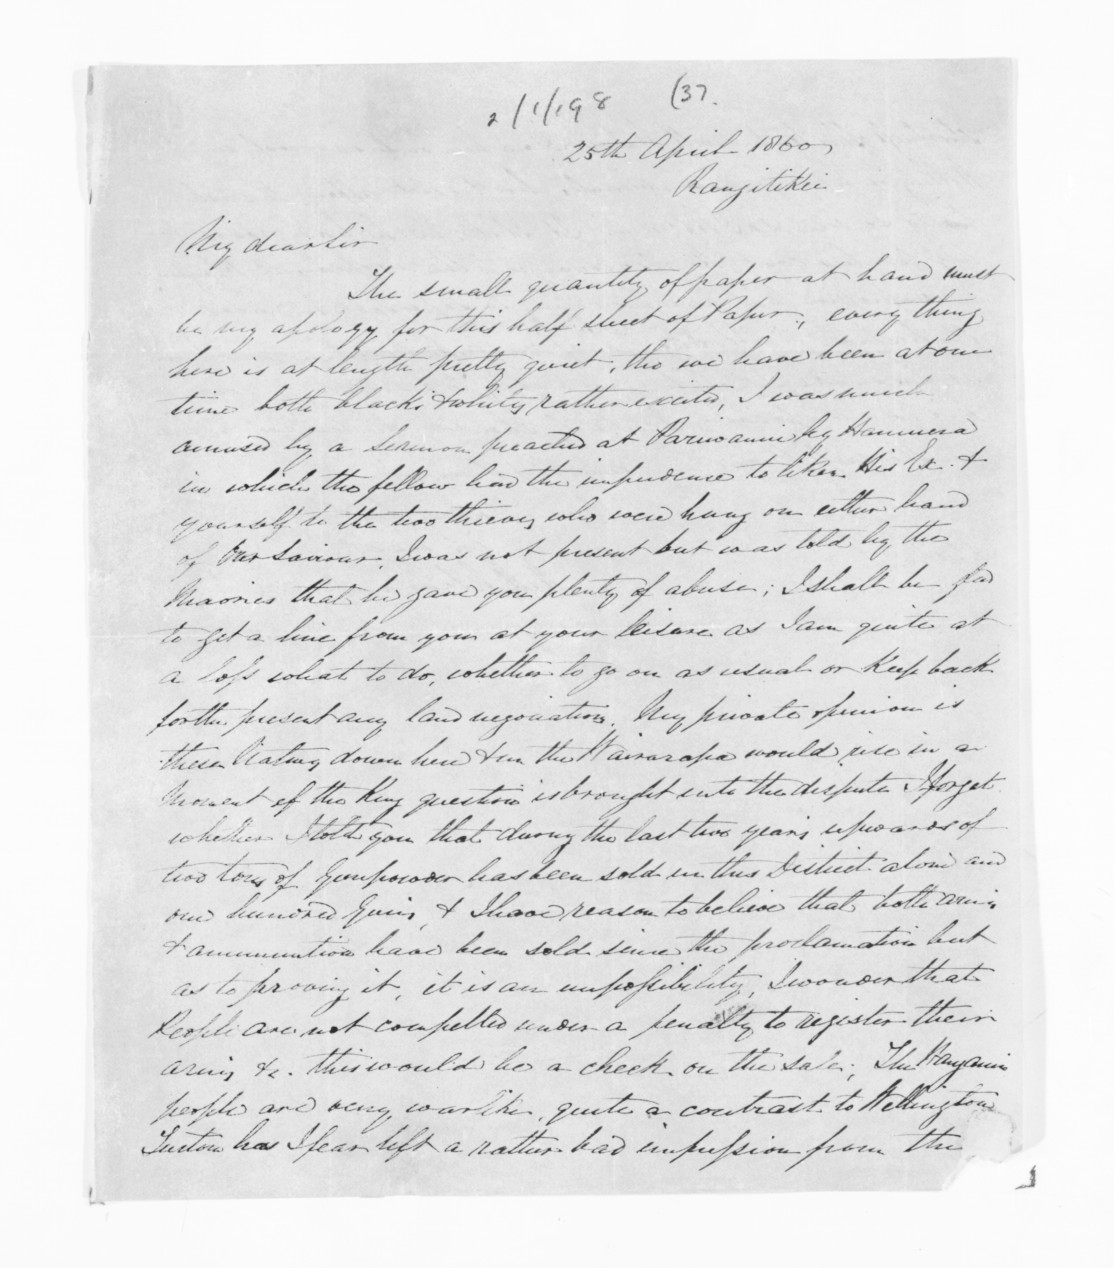 2/1/198 (37.
25th April 1860
Rangitikei
My dear Sir
The small quantity of paper at hand must
be my apology for this half sheet of Paper, every thing
here is at length pretty quiet, tho we have been at one
time both blacks & whites rather excited, I was much
amused by a Sermon preached at Pariwanui by Hamuera
in which the fellow had the impudence to liken His Ex. &
yourself to the two thieves who were hung on either hand
of Our Saviour, I was not present but was told by the
Maories that he gave you plenty of abuse; I shall be glad
to get a line from you at your leisure as I am quite at
a loss what to do, whether to go on as usual or Keep back
for the present any land negociations. My private opinion is
these Natives down here & in the Wairarapa would rise in a
moment if the King question is brought into the dispute I forget
whether I told you that during the last two years upwards of
two tons of Gunpowder has been sold in this District alone and
one hundred Guns, & I have reason to believe that both arms
& ammunition have been sold since the proclamation but
as to proving it, it is an impossibility, I wonder that
People are not compelled under a penalty to register their
arms &c. this would be a check on the sale; The Wanganui
people are very warlike, quite a contrast to Wellington
has I fear left a rather bad impression from the